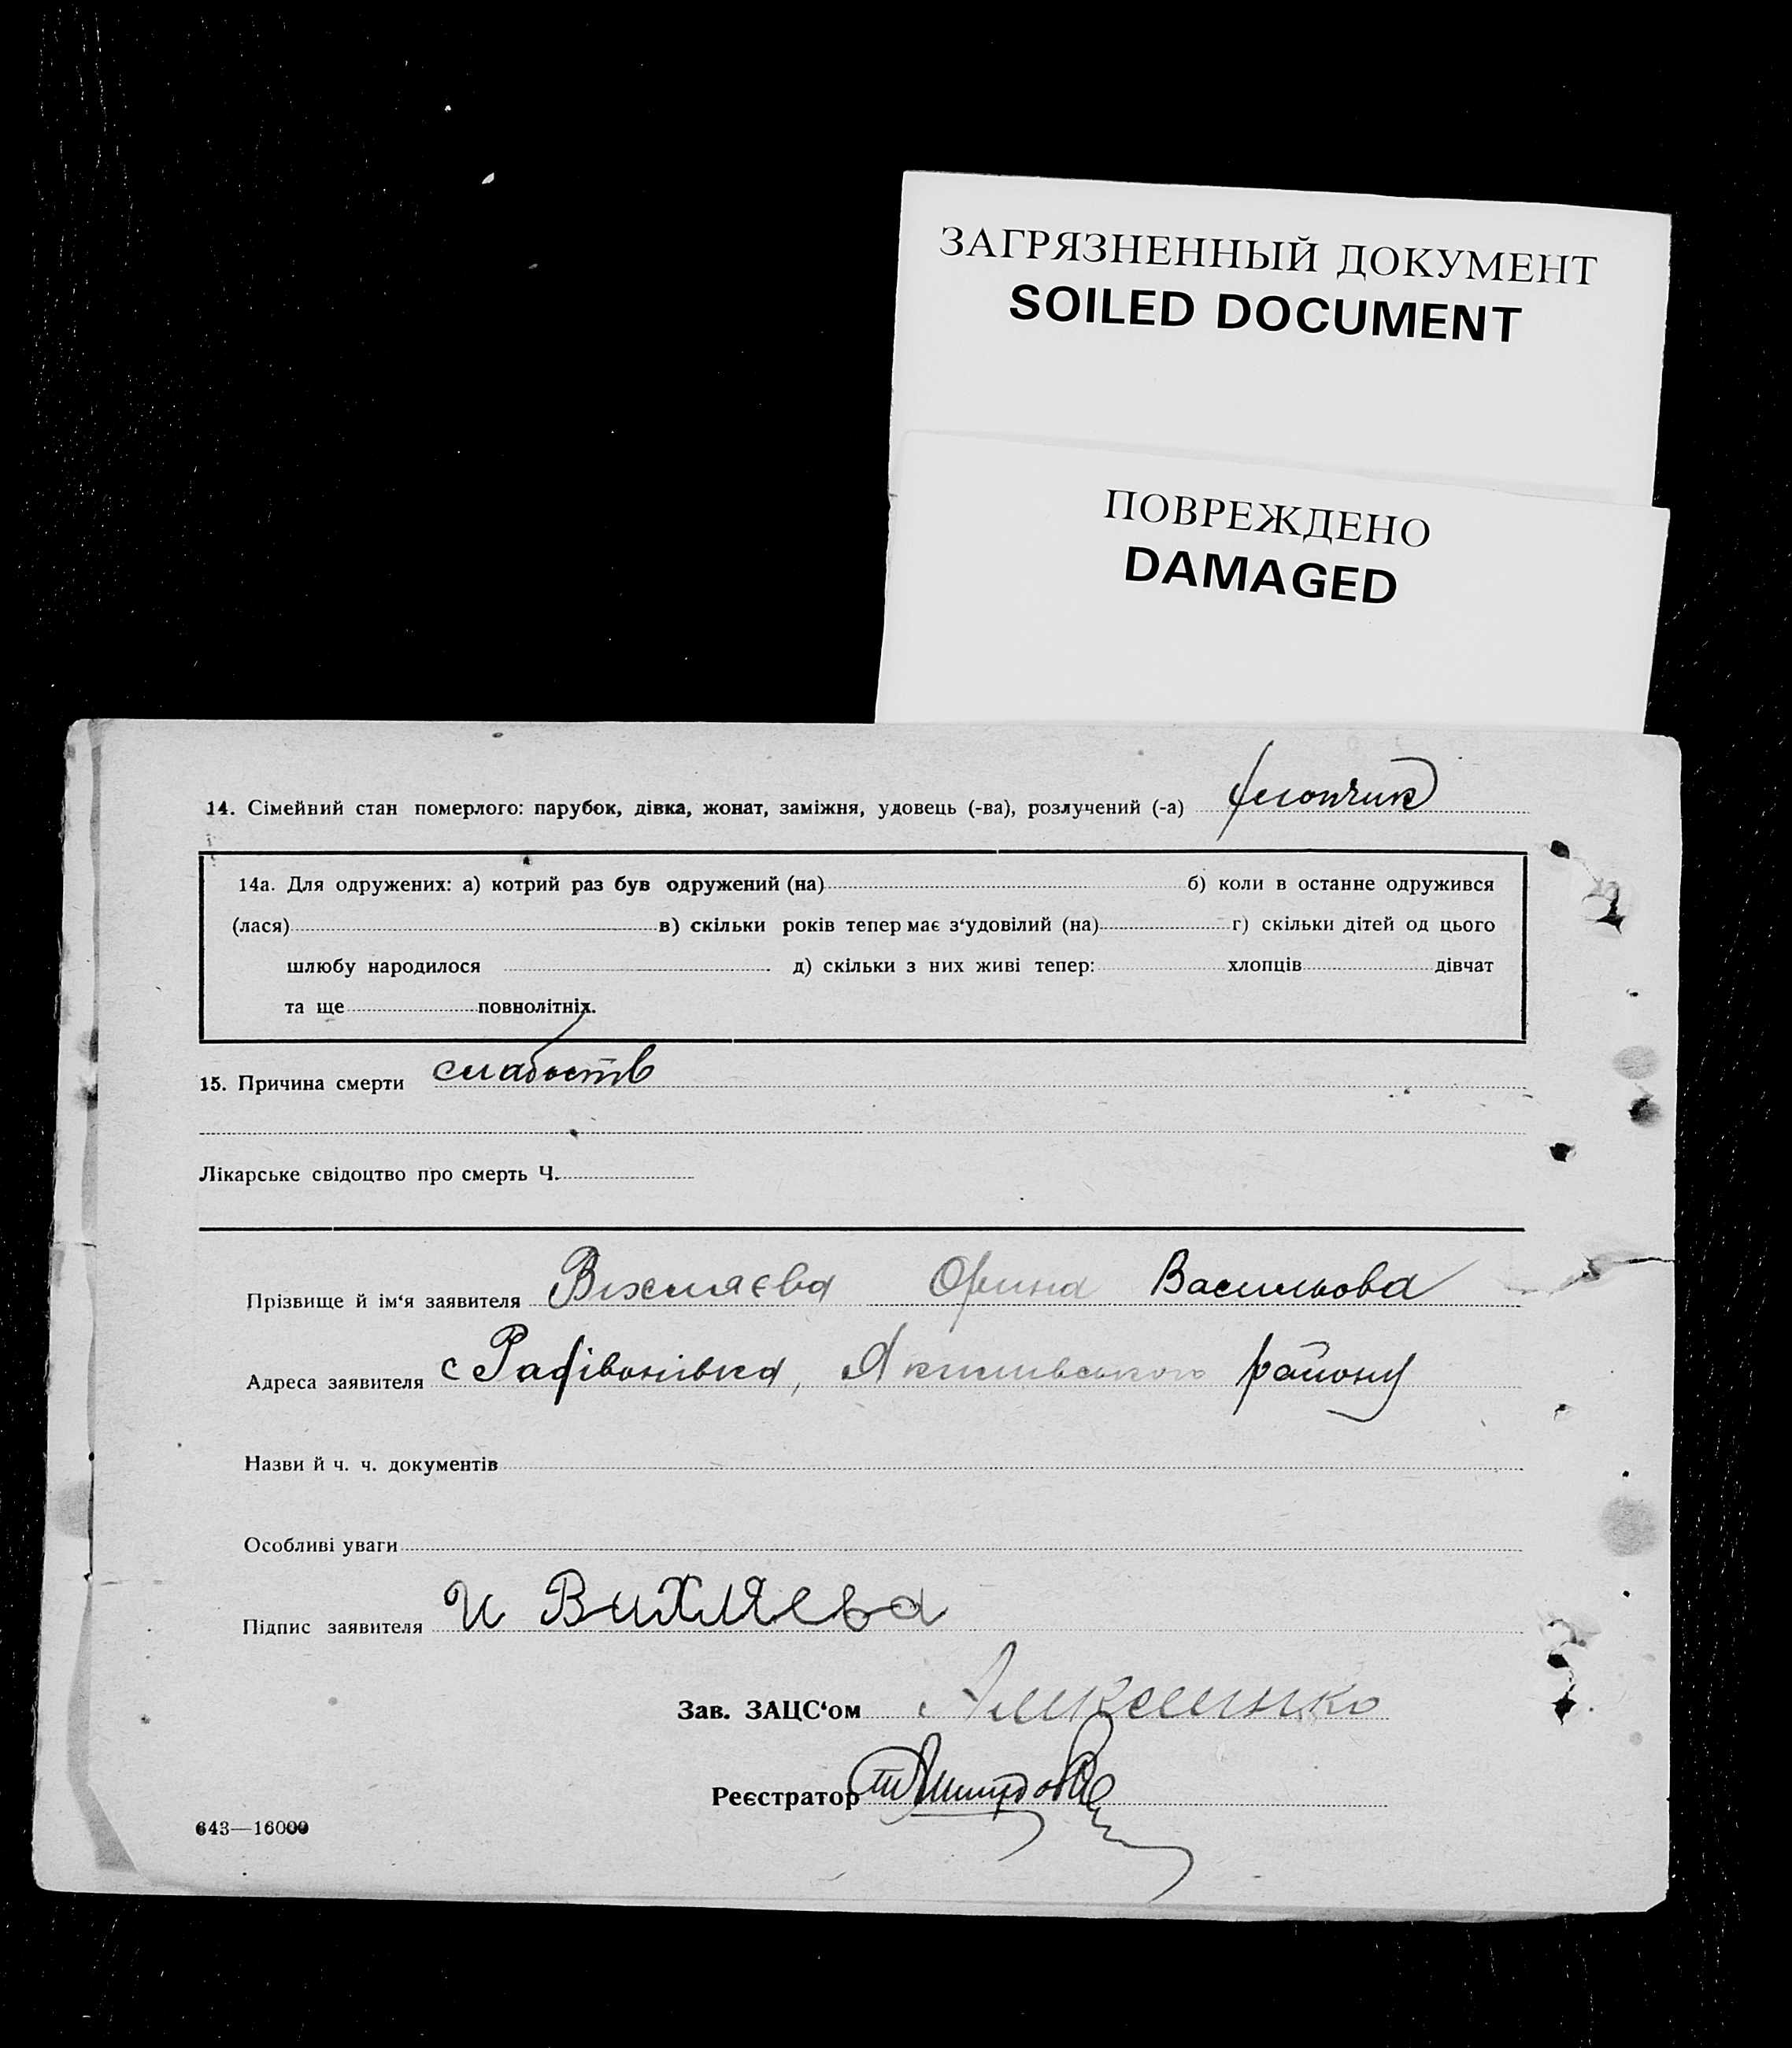 ЗАГРЯЗНЕННЫЙ ДОКУМЕНТ
SOILED DOCUMENT
ПОВРЕЖДЕНО
DAMAGED
14. Сімейний стан померлого: парубок, дівка, жонат, заміжня, удовець (-ва), розлучений (-а) хлопчик
14а. Для одружених: а) котрий раз був одружений (на) б) коли в останне одружився
(лася) в) скільки років тепер має з‘удовілий (на) г) скільки дітей од цього
шлюбу народилося д) скільки з них живі тепер: хлопців дівчат
та ще повнолітніх.
15. Причина смерти слабость
Лікарське свідоцтво про смерть Ч.
Прізвище й ім‘я заявителя Вихляєва Орина Василькова
Адреса заявителя с Радівонівка, Якимівського району
Назви й ч. ч. документів
Особливі уваги
Підпис заявителя И Вихляева
Зав. ЗАЦС‘ом
Реєстратор
643—16000